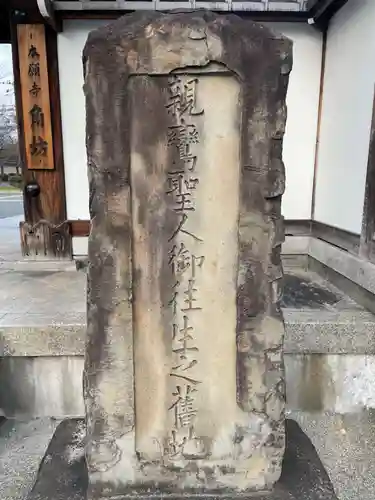 本願寺角坊
親鸞聖人御往生之舊地